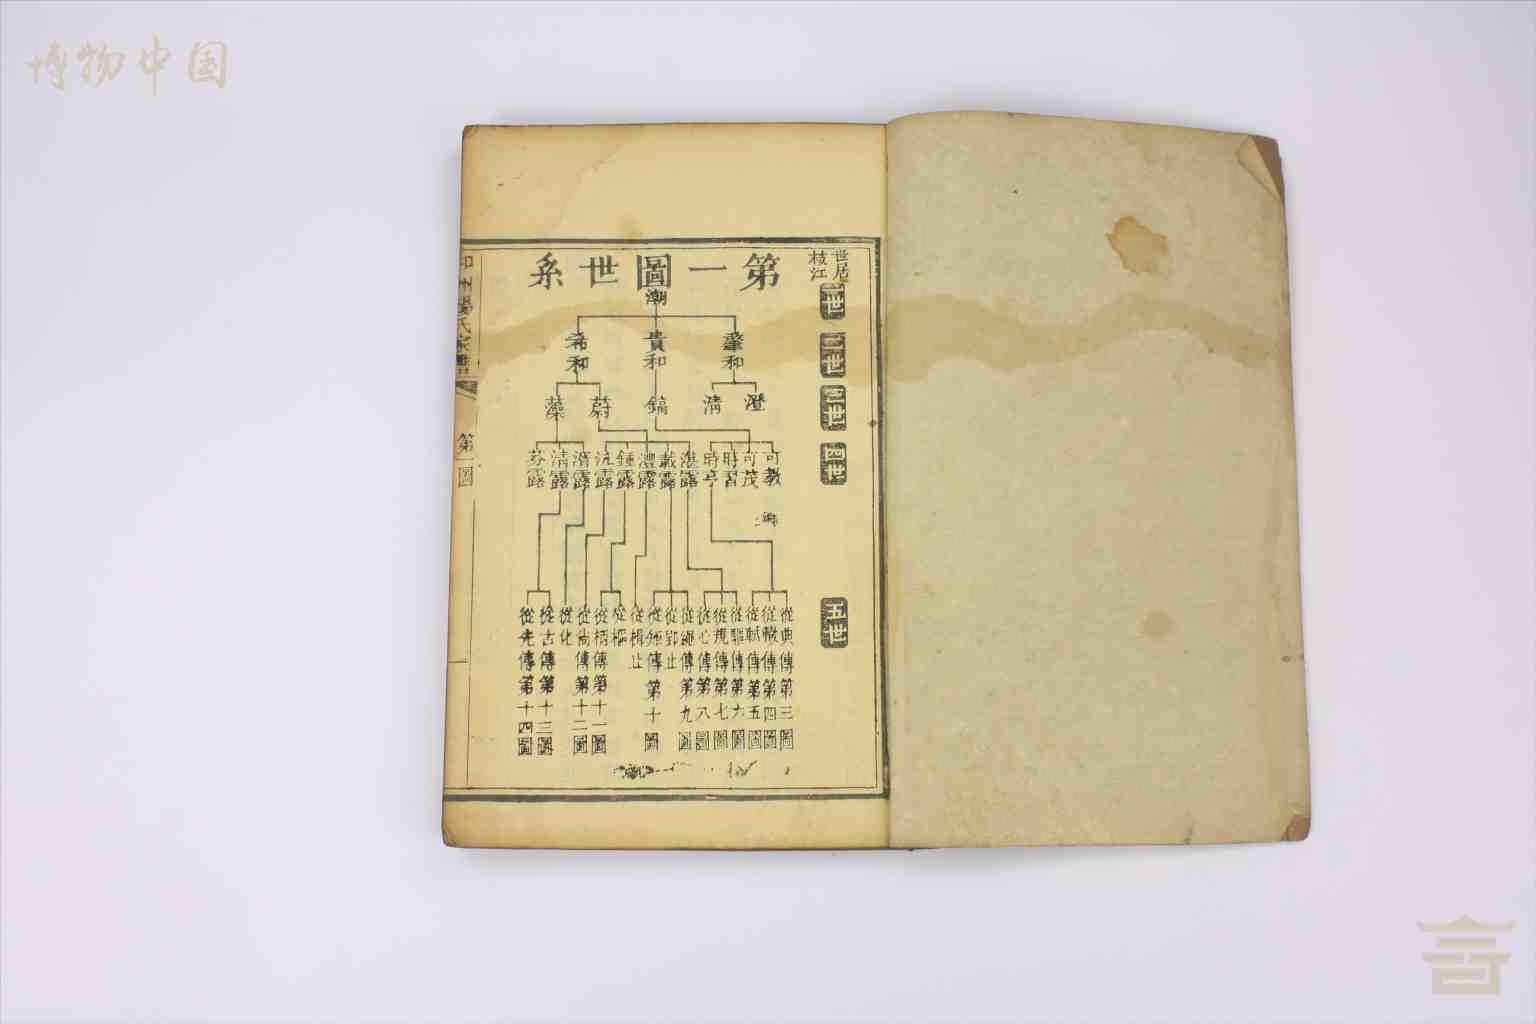 博物中国
世居
枝江
第一圖世系
一世
潮
二世
肇和
貴和
希和
三世
澄
清
鎬
蔚
藻
四世
可教
可茂
時習
時亭
湛露
載露
澧露
鍾露
沆露
湑露
清露
芬露
五世
從典傳第三圖
從職傳第四圖
從軾傳第五圖
從驤傳第六圖
從規傳第七圖
從心傳第八圖
從繩傳第九圖
從鄂止
從鉦傳第十圖
從楫止
從樞
從栢傳第十一圖
從尚傳第十二圖
從化
從古傳第十三圖
從先傳第十四圖
楊氏家譜
第一圖